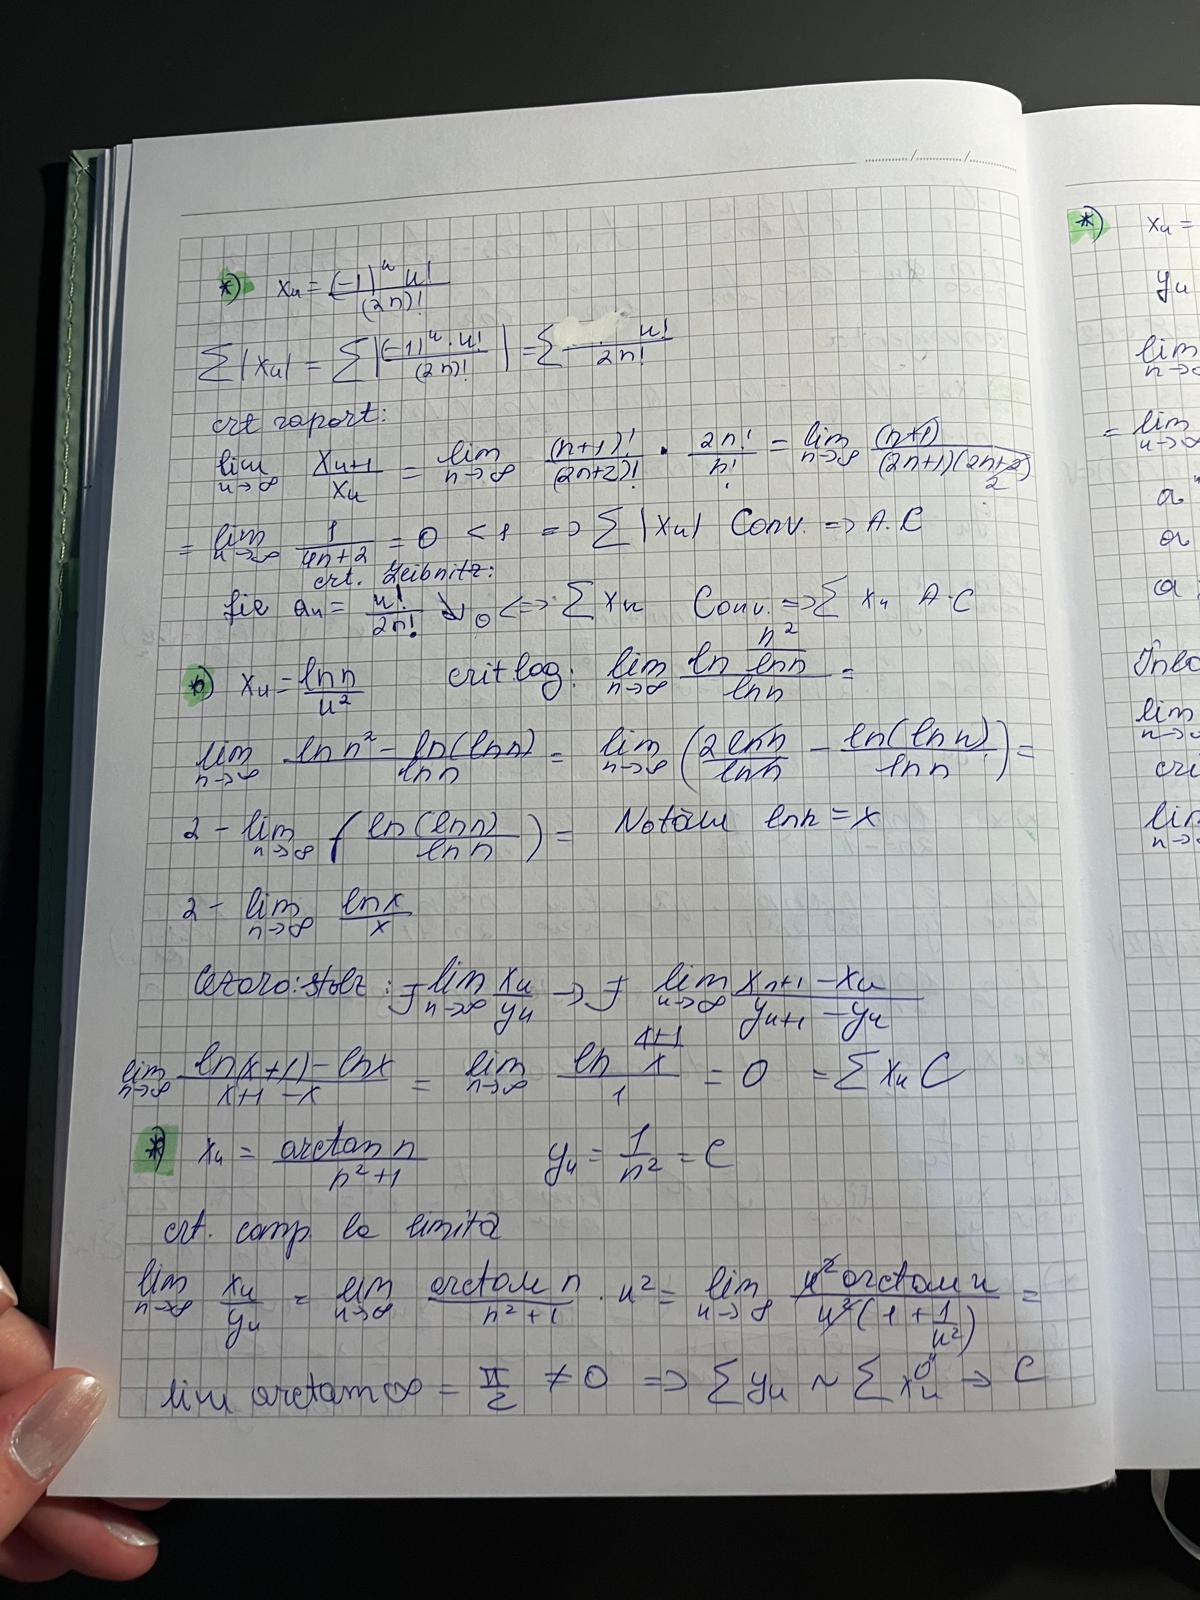 *) xn = (-1)^n n! / (2n)!
∑|xn| = ∑|(-1)^n · n! / (2n)!| = ∑ n! / 2n!
crt raport:
lim n→∞ xn+1 / xn = lim n→∞ (n+1)! / (2n+2)! · 2n! / n! = lim n→∞ (n+1) / (2n+1)(2n+2) 2
= lim n→∞ 1 / 4n+2 = 0 < 1 => ∑|xn| Conv. => A.C
crt. Leibnitz:
fie an = n! / 2n! ↘ 0 <=> ∑ xn Conv. => ∑ xn A.C
*) xn = ln n / n² crit log: lim n→∞ ln n²/ln n / ln n =
lim n→∞ ln n² - ln(ln n) / ln n = lim n→∞ (2 ln n / ln n - ln(ln n) / ln n) =
2 - lim n→∞ (ln(ln n) / ln n) = Notăm ln n = x
2 - lim n→∞ ln x / x
Cezaro:stolz : ∃ lim n→∞ xn / yn → ∃ lim n→∞ xn+1 - xn / yn+1 - yn
lim n→∞ ln(x+1) - ln x / x+1 - x = lim n→∞ ln x+1/x / 1 = 0 = ∑ xn C
*) xn = arctan n / n²+1 yn = 1 / n² = C
crt. comp. la limita
lim n→∞ xn / yn = lim n→∞ arctan n / n²+1 · n² = lim n→∞ n² arctan n / n²(1 + 1/n²) =
0
lim arctan ∞ = π/2 ≠ 0 => ∑ yn ~ ∑ xn → C
*) xn =
yn
lim n→∞
= lim n→∞
a
a
a
lim n→∞
lim n→∞